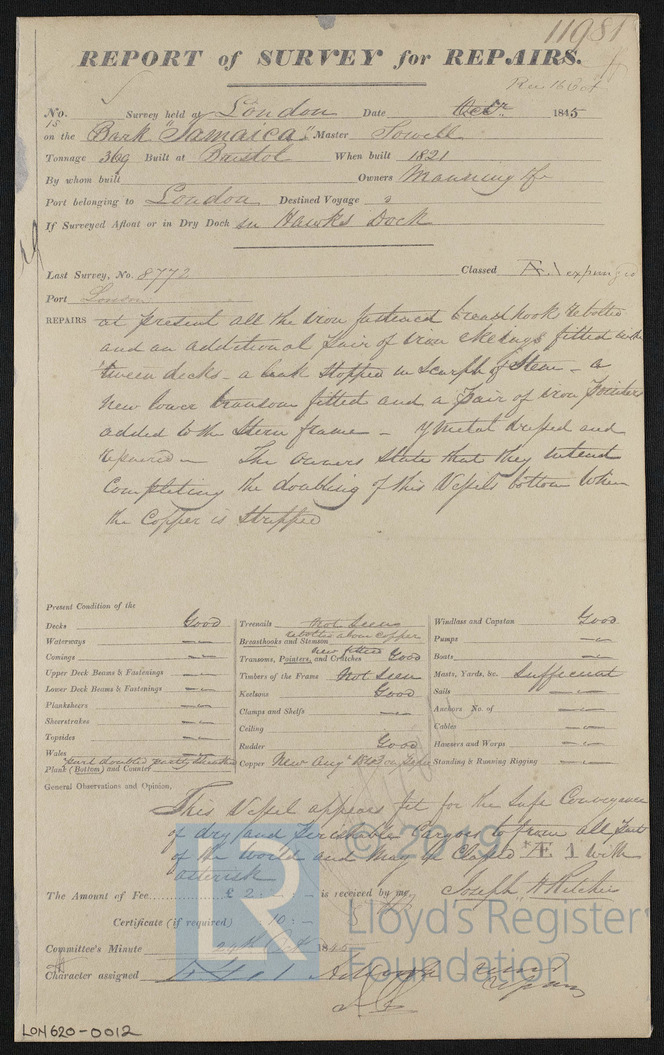 11981
REPORT of SURVEY for REPAIRS.
Rec 16 Oct
No. Survey held at London Date Octr 1845
on the Bark "Jamaica" Master Sowell
Tonnage 369 Built at Bristol When built 1821
By whom built Owners Manning &c
Port belonging to London Destined Voyage
If Surveyed Afloat or in Dry Dock in Hawks Dock
Last Survey, No. 8772 Classed Æ. 1 expunged
Port London
REPAIRS at present all the iron fastened breasthook rebolted
and an additional pair of iron ekeings fitted in the
'tween decks - a leak stopped in scarph of Stem - a
new lower transom fitted and a pair of iron Pointers
added to the Stern frame - Y Metal stripped and
repaired - The owners state that they intend
Completing the doubling of this Vessels bottom when
the Copper is stripped
Present Condition of the
Decks Good
Waterways
Comings
Upper Deck Beams & Fastenings
Lower Deck Beams & Fastenings
Planksheers
Sheerstrakes
Topsides
Wales
part doubled partly
Plank (Bottom) and Counter
Treenails Not Seen
rebolted above copper
Breasthooks and Stemson
new fitted
Transoms, Pointers, and Crutches Good
Timbers of the Frame Not Seen
Keelsons Good
Clamps and Shelfs
Ceiling
Rudder Good
Copper New Augt
Windlass and Capstan Good
Pumps
Boats
Masts, Yards, &c. Sufficient
Sails
Anchors No. of
Cables
Hawsers and Warps
Standing & Running Rigging
General Observations and Opinion,
This Vessel appears fit for the Safe Conveyance
of dry and Perishable Cargoes to & from all Parts
of the World and may be Classed Æ 1 with
asterisk
The Amount of Fee £ 2 : - is received by me, Joseph H Ritchie
Certificate (if required) 10 : -
Committee's Minute 24th Oct 1845
Character assigned
LON620-0012
© 2019
LR
Lloyd's Register
Foundation